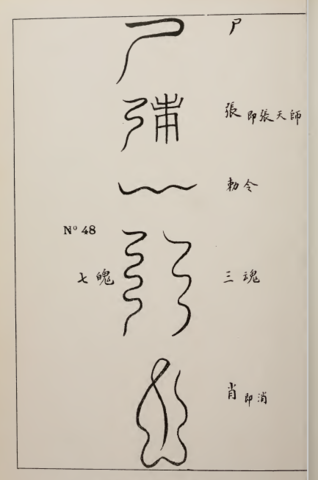 尸
張 即張天師
勅令
Nº 48
七魄
三魂
肖即消